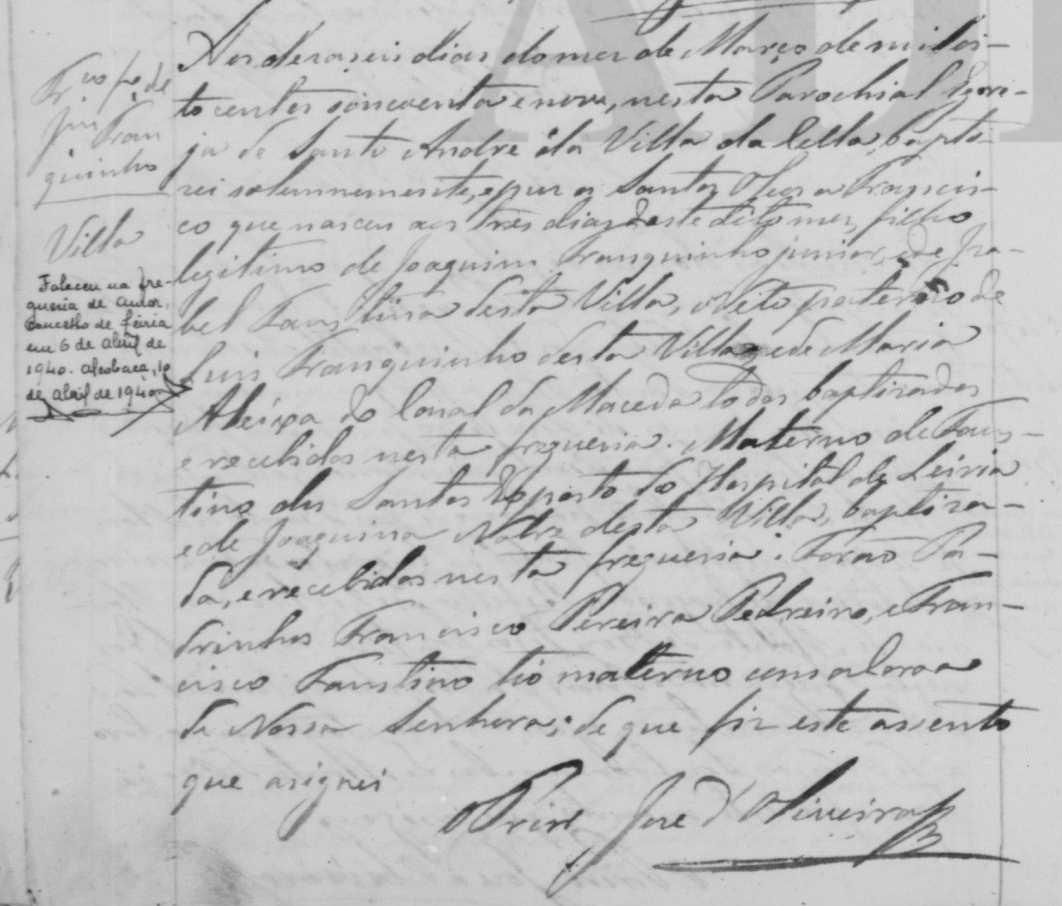 Fr.co f.o de
Jm Fran
quinho
Villa
Faleceu na fre-
guesia de Amor,
concelho de Leiria
em 6 de Abril de
1940. Alcobaça, 10
de Abril de 1940.
Aos deraseis dias do mes de Março de mil oi-
to centos cincoenta e nove, nesta Parochial Egre-
ja de Santo André da Villa da Cella, bapti-
zei solemnemente, e puz os Santos Oleos a Francis-
co que nasceu aos tres dias deste dito mes, filho
legitimo de Joaquim Franquinho junior, e de Iza-
bel Faustina desta Villa, Neto paterno de
Luis Franquinho desta Villa e de Maria
Aleixa do Casal da Maceda todos baptizados
e recebidos nesta freguesia. Materno de Faus-
tino dos Santos Exposto do Hospital de Leiria
e de Joaquina desta Villa, baptiza-
da, e recebidos nesta freguesia. Forão Pa-
drinhos Francisco Pereira Pedreiro, e Fran-
cisco Faustino tio materno com a Coroa
de Nossa Senhora; de que fiz este assento
que asignei
O Prior José d'Oliveira